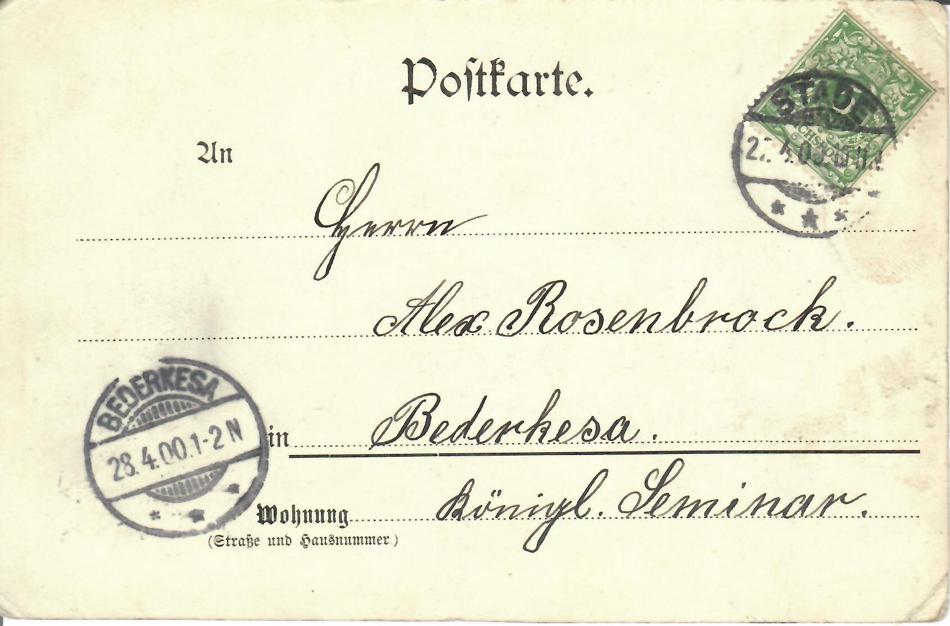 Postkarte.
STADE
An
Herrn
Alex Rosenbrock.
BEDERKESA
28.4.00.1-2 N
in Bederkesa.
Wohnung Königl. Seminar.
(Straße und Hausnummer)